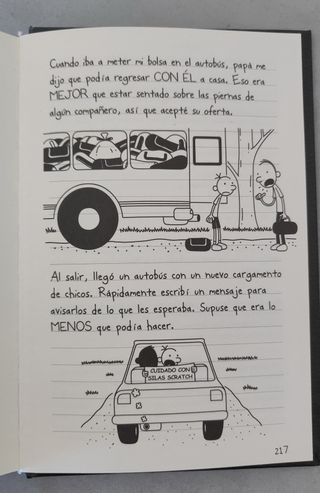 Cuando iba a meter mi bolsa en el autobús, papá me
dijo que podía regresar CON ÉL a casa. Eso era
MEJOR que estar sentado sobre las piernas de
algún compañero, así que acepté su oferta.
Al salir, llegó un autobús con un nuevo cargamento
de chicos. Rápidamente escribí un mensaje para
avisarlos de lo que les esperaba. Supuse que era lo
MENOS que podía hacer.
CUIDADO CON
SILAS SCRATCH
217